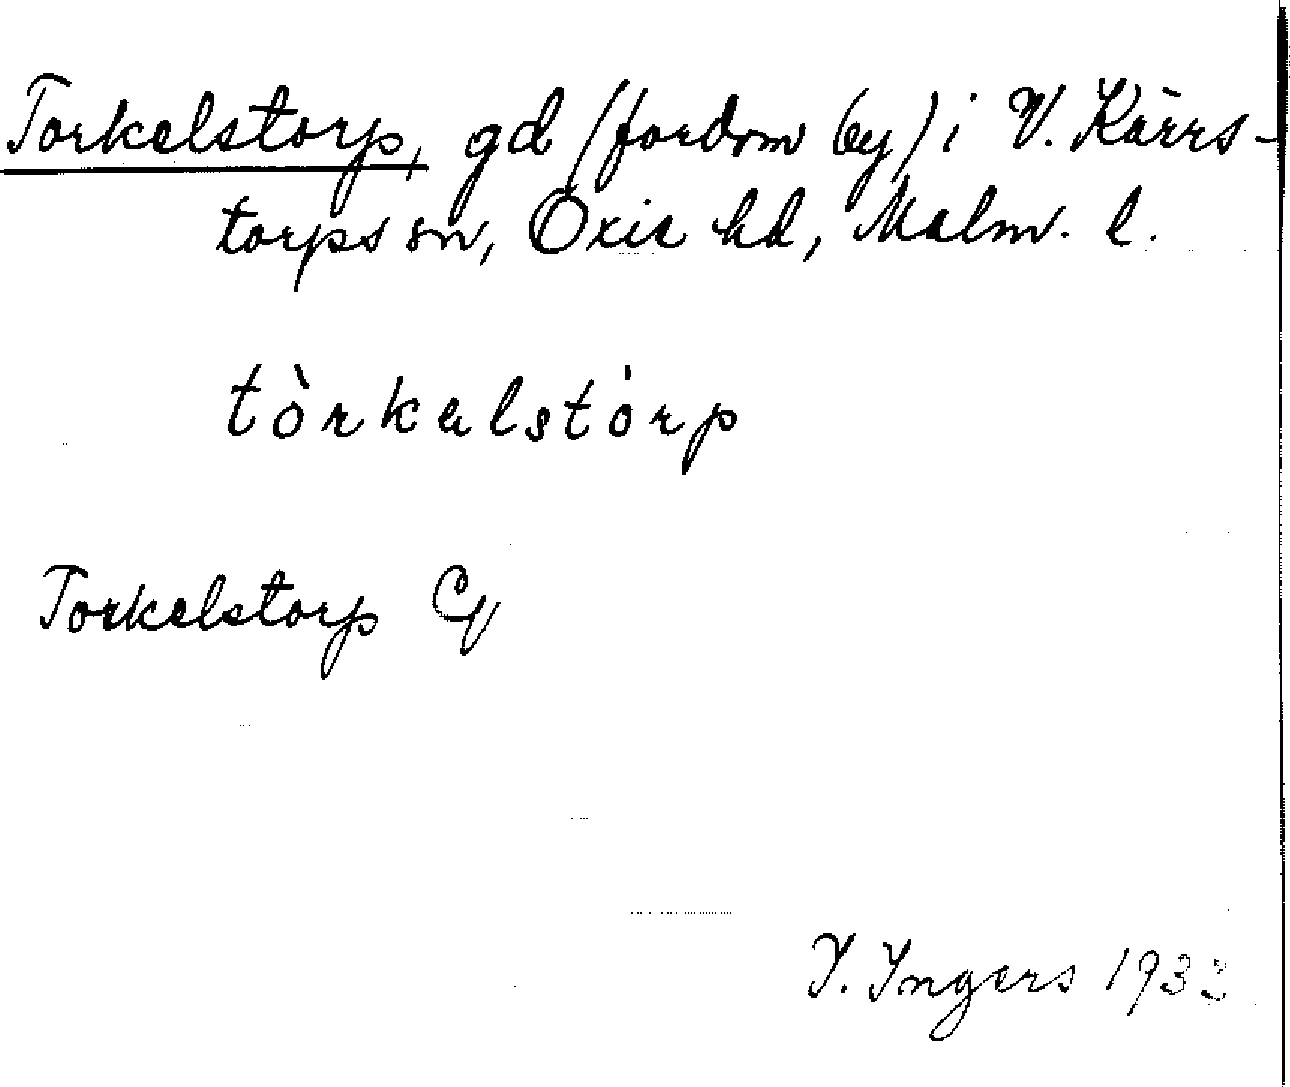 Torkelstorp, gd (fordom by) i V. Kärrs-
torps sn, Oxie hd, Malm. l.
tòrkalstórp
Torkelstorp
I. Ingers 1933